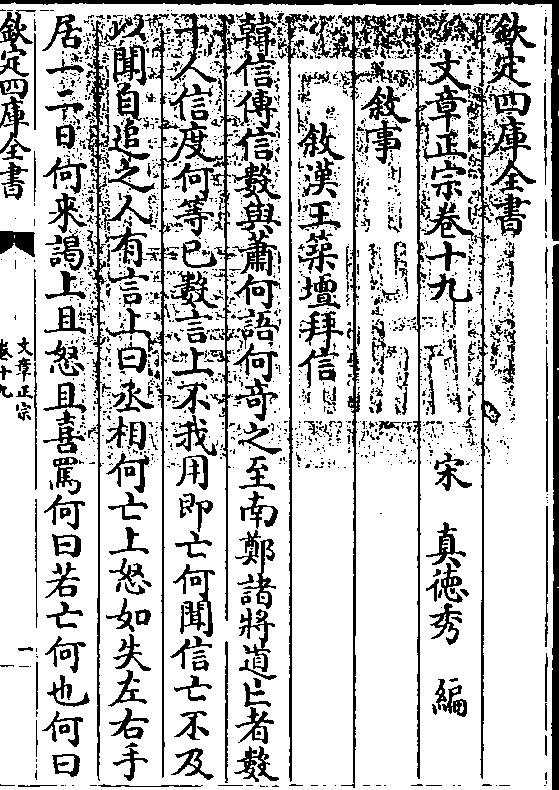 欽定四庫全書
文章正宗卷十九　宋　真徳秀　編
敘事
敘漢王築壇拜信
韓信傳信數與蕭何語何奇之至南鄭諸將道亡者數
十人信度何等已數言上不我用即亡何聞信亡不及
以聞自追之人有言上曰丞相何亡上怒如失左右手
居一二日何来謁上且怒且喜罵何曰若亡何也何曰
欽定四庫全書
文章正宗
卷十九
一